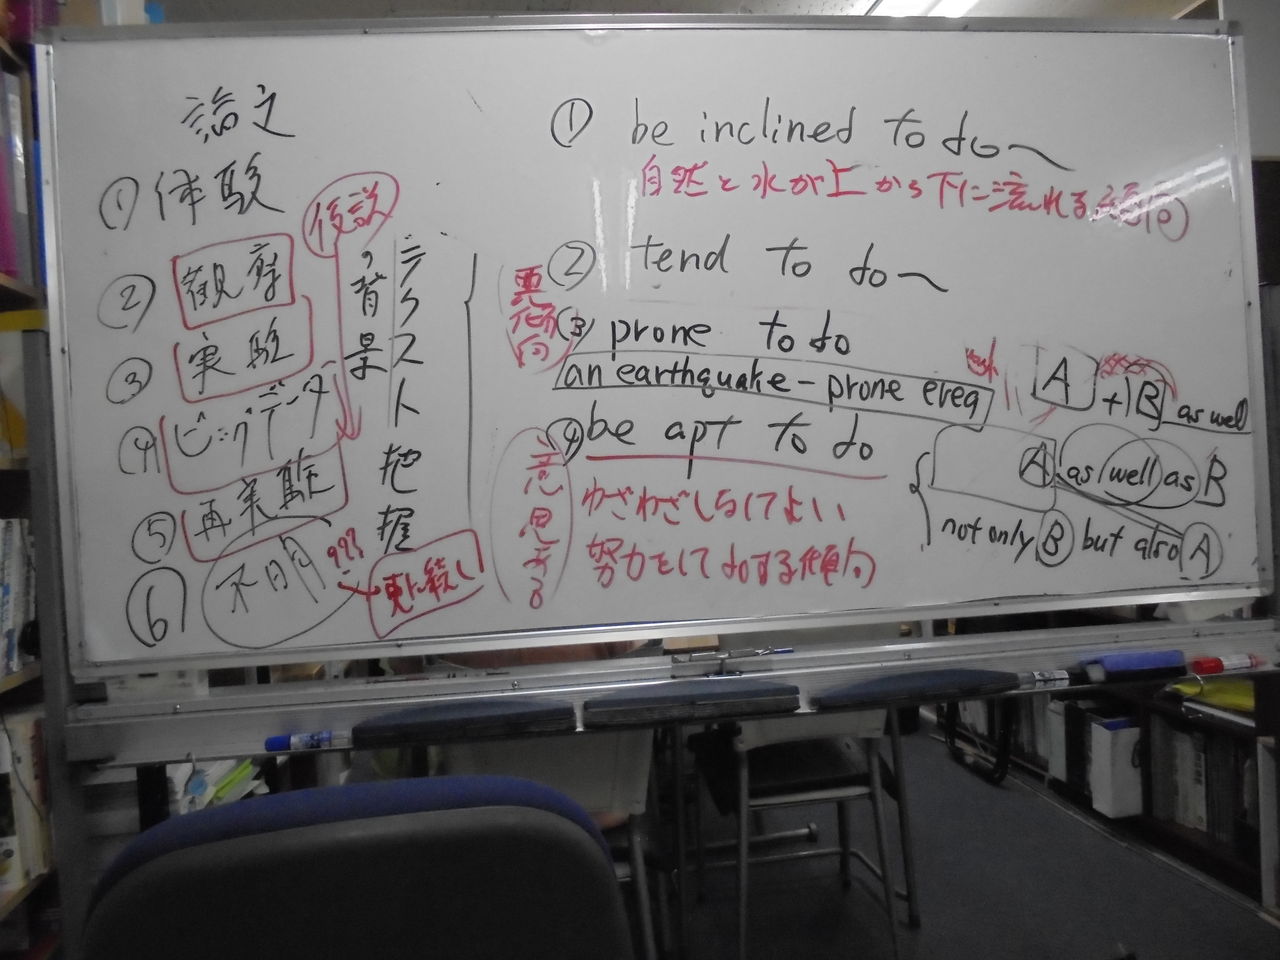 論文
① 体験
② 観察
③ 実験
④ ビッグデータ
⑤ 再実験
⑥ 不明
???
仮説
の背景
テクスト把握
① be inclined to do~
自然と水が上から下に流れる傾向
② tend to do~
悪傾向
③ prone to do
an earthquake-prone erea
④ be apt to do
意思ある
わざわざしなくてよい
努力をしてdoする傾向
A + B as well
A as well as B
not only B but also A